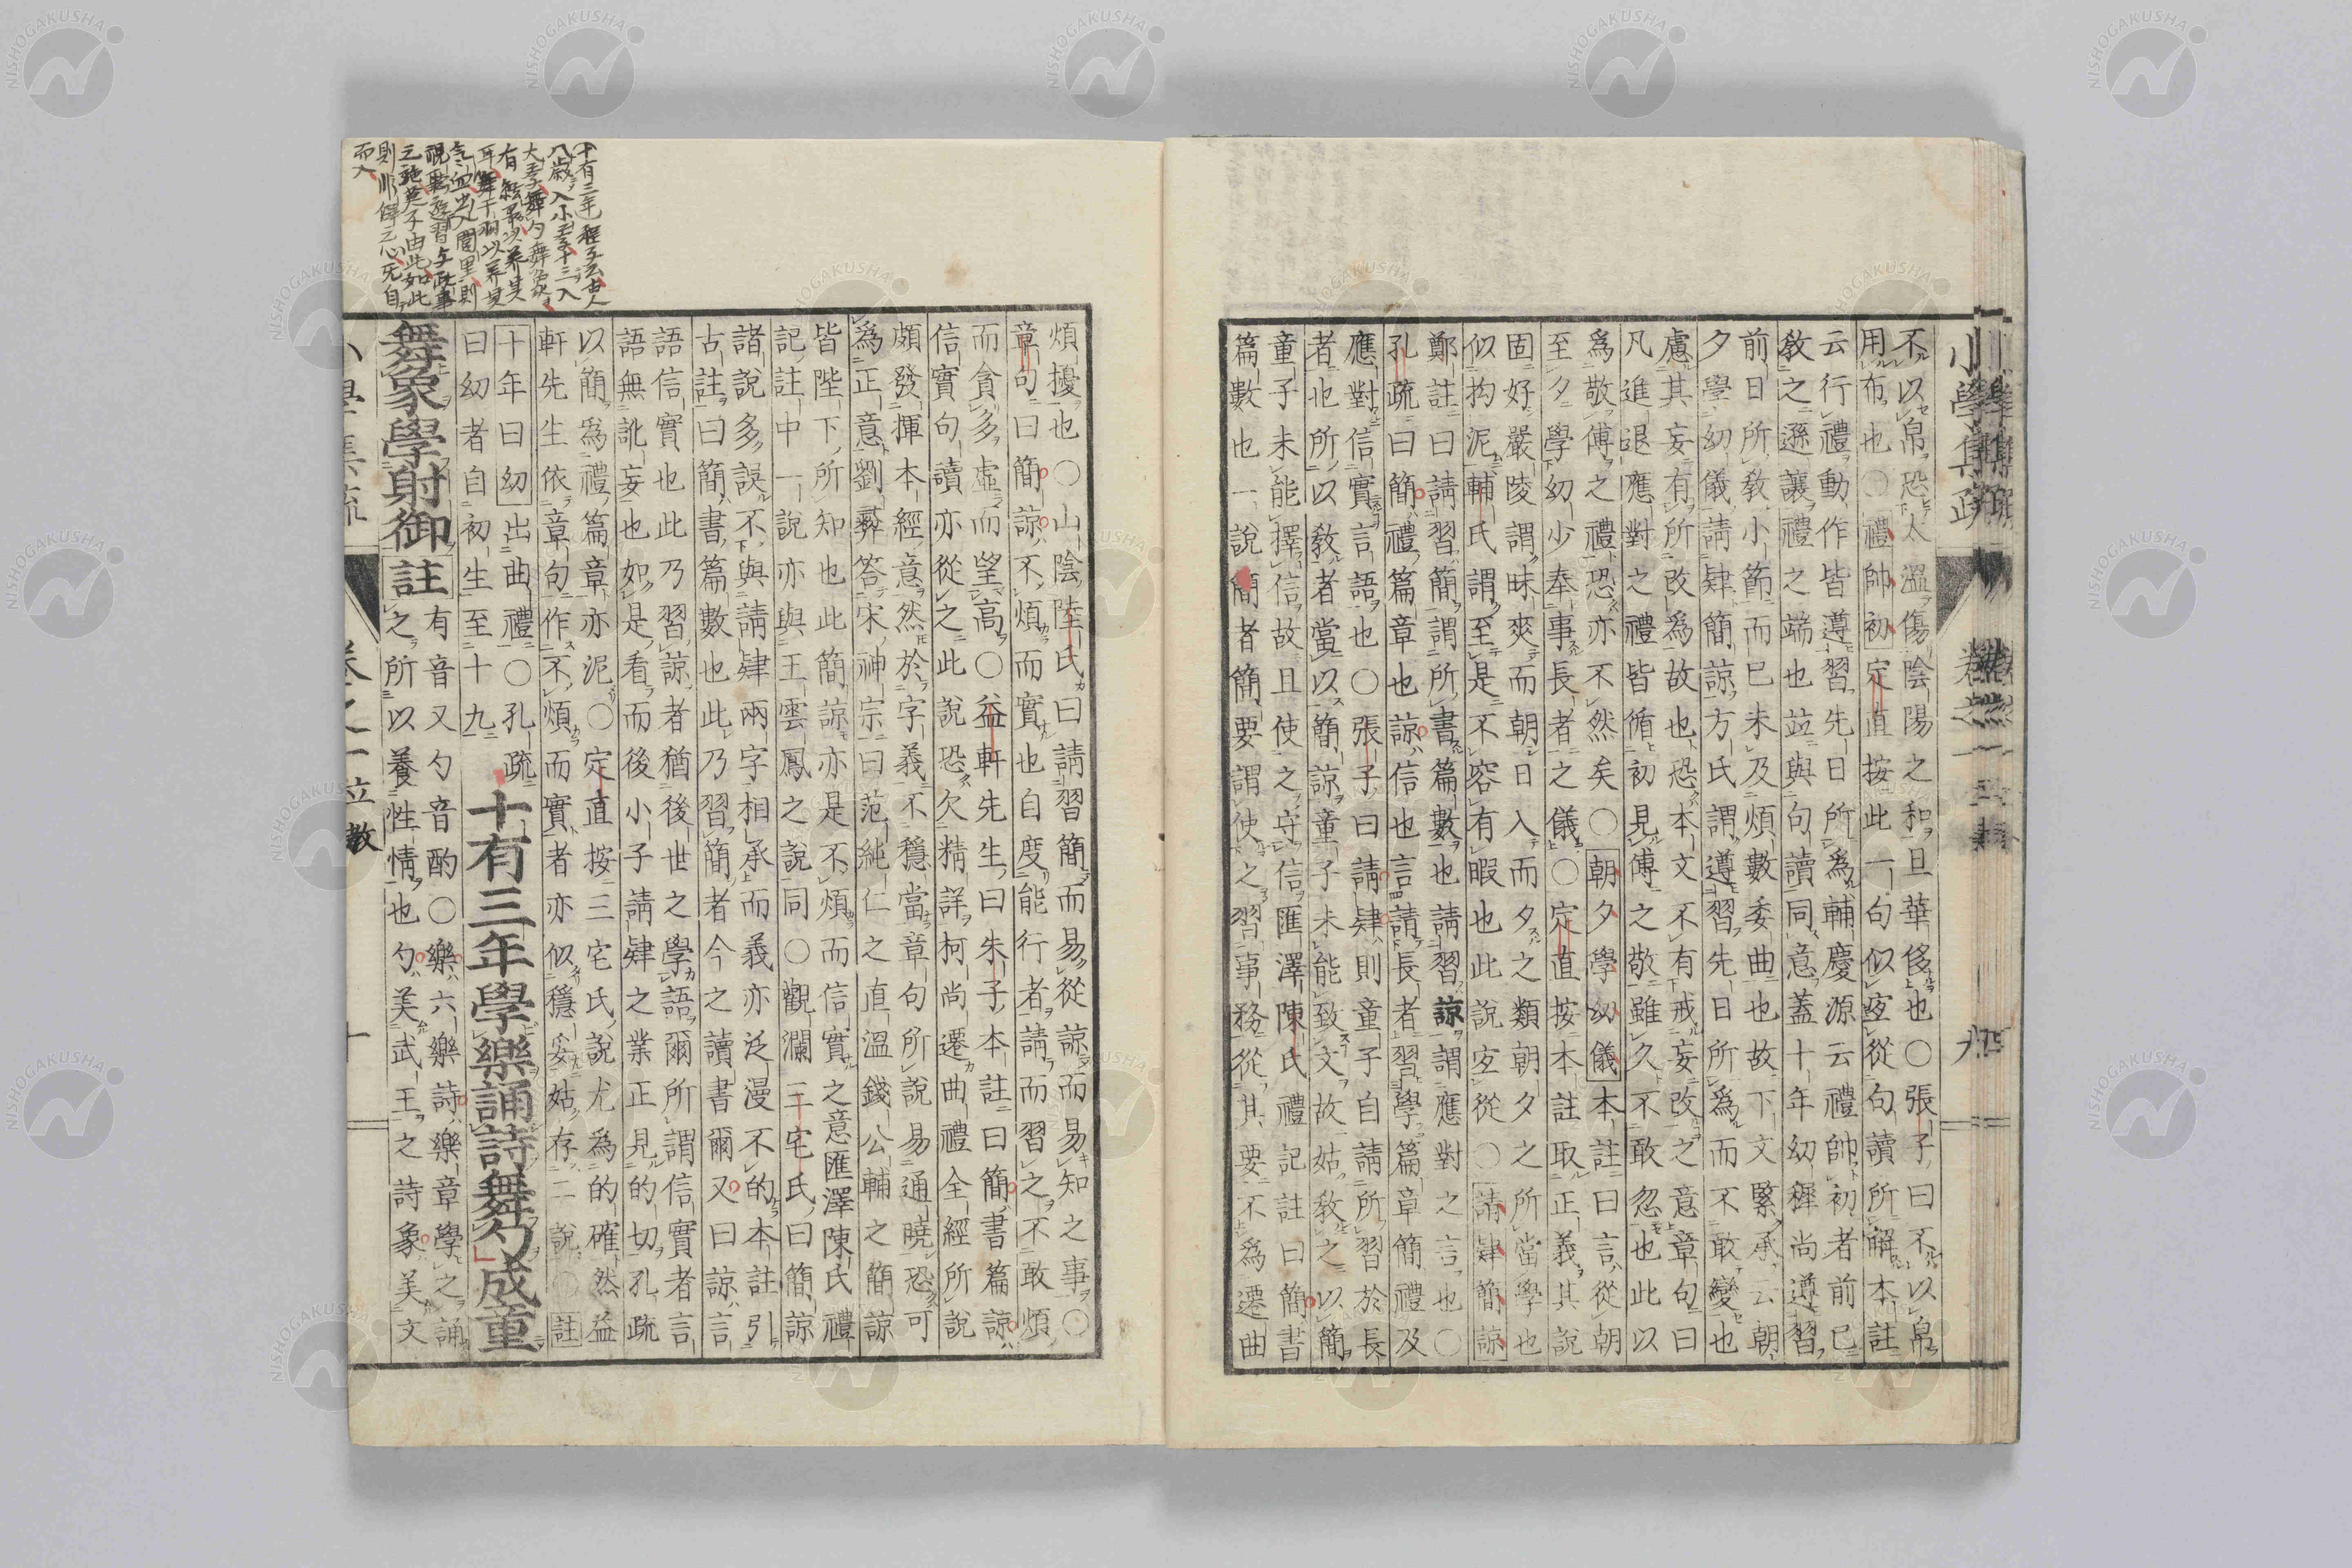 不以帛恐太溫傷陰陽之和且華侈也○張子曰不以帛
用布也○禮帥初定直按此一句似宜從句讀所解本註
云行禮動作皆遵習先日所爲輔慶源云禮帥初者前已
敎之遜讓禮之端也竝與句讀同意蓋十年幼穉尚遵習
前日所敎小節而已未及煩數委曲也故下文緊承云朝
夕學幼儀請肄簡諒方氏謂遵習先日所爲而不敢變也
慮其妄有所改爲故也恐本文不有戒妄改之意章句曰
凡進退應對之禮皆循初見傅之敬雖久不敢忽也此以
爲敬傅之禮恐亦不然矣○朝夕學幼儀本註曰言從朝
至夕學幼少奉事長者之儀○定直按本註取正義其說
固好嚴陵謂昧爽而朝日入而夕之類朝夕之所當學也
似拘泥輔氏謂至是不容有暇也此說宜從○請肄簡諒
鄭註曰請習簡謂所書篇數也請習諒謂應對之言也○
孔疏曰簡禮篇章也諒信也言請長者習學篇章簡禮及
應對信實言語也○張子曰請肄則童子自請所習於長
者也所以敎者當以簡諒童子未能致文故姑敎之以簡
童子未能擇信故且使之守信匯澤陳氏禮記註曰簡書
篇數也一說簡者簡要謂使之習事務從其要不爲遷曲
小學集疏
卷之一
九
煩擾也○山陰陸氏曰請習簡而易從諒而易知之事○
章句曰簡諒不煩而實也自度能行者請而習之不敢煩
而貪多虛而望高○益軒先生曰朱子本註曰簡書篇諒
信實句讀亦從之此說恐欠精詳柯尚遷曲禮全經所說
頗發揮本經意然於字義不穩當章句所說易通曉恐可
爲正意劉彝答宋神宗曰范純仁之直溫錢公輔之簡諒
皆陛下所知也此簡諒亦是不煩而信實之意匯澤陳氏禮
記註中一說亦與王雲鳳之說同○觀瀾三宅氏曰簡諒
諸說多誤不與請肄兩字相承而義亦泛漫不的本註引
古註曰簡書篇數也此乃習簡者今之讀書爾又曰諒言
語信實也此乃習諒者猶後世之學語爾所謂信實者言
語無訛妄也如是看而後小子請肄之業正見的切孔疏
以簡爲禮篇章亦泥○定直按三宅氏說尤爲的確然益
軒先生依章句作不煩而實者亦似穩妥姑存二說○註
十年曰幼出曲禮○孔疏
曰幼者自初生至十九
十有三年學樂誦詩舞勺成童
舞象學射御註
有音又勺音酌○樂六樂詩樂章學之誦
之所以養性情也勺美武王之詩象美文
卷之一
立敎
十